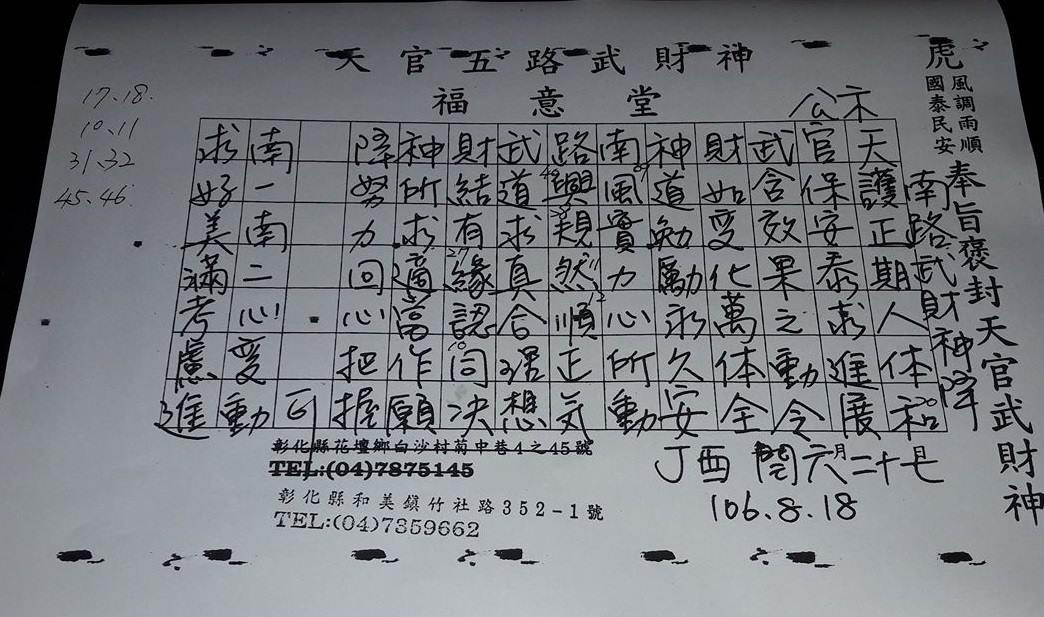 天官五路武財神
福意堂
公示
虎
風調雨順
國泰民安
奉旨褒封天官武財神
南路武財神降
天護正期人体和
官保安泰求進展
武含效果之動令
財如变化萬体全
神道勉勵永久安
南風實力心所動
路興規然順正気
武道求真合理想
財結有緣認同决
神所求適當作願
降努力回心把握
可
南一南二心变動
求好美滿考慮進
17.18.
10.11
31.32
45.46.
丁酉 閏六月二十七日
106.8.18
彰化縣花壇鄉白沙村菊中巷4之45號
TEL:(04)7875145
彰化縣和美鎮竹社路352-1號
TEL:(04)7359662